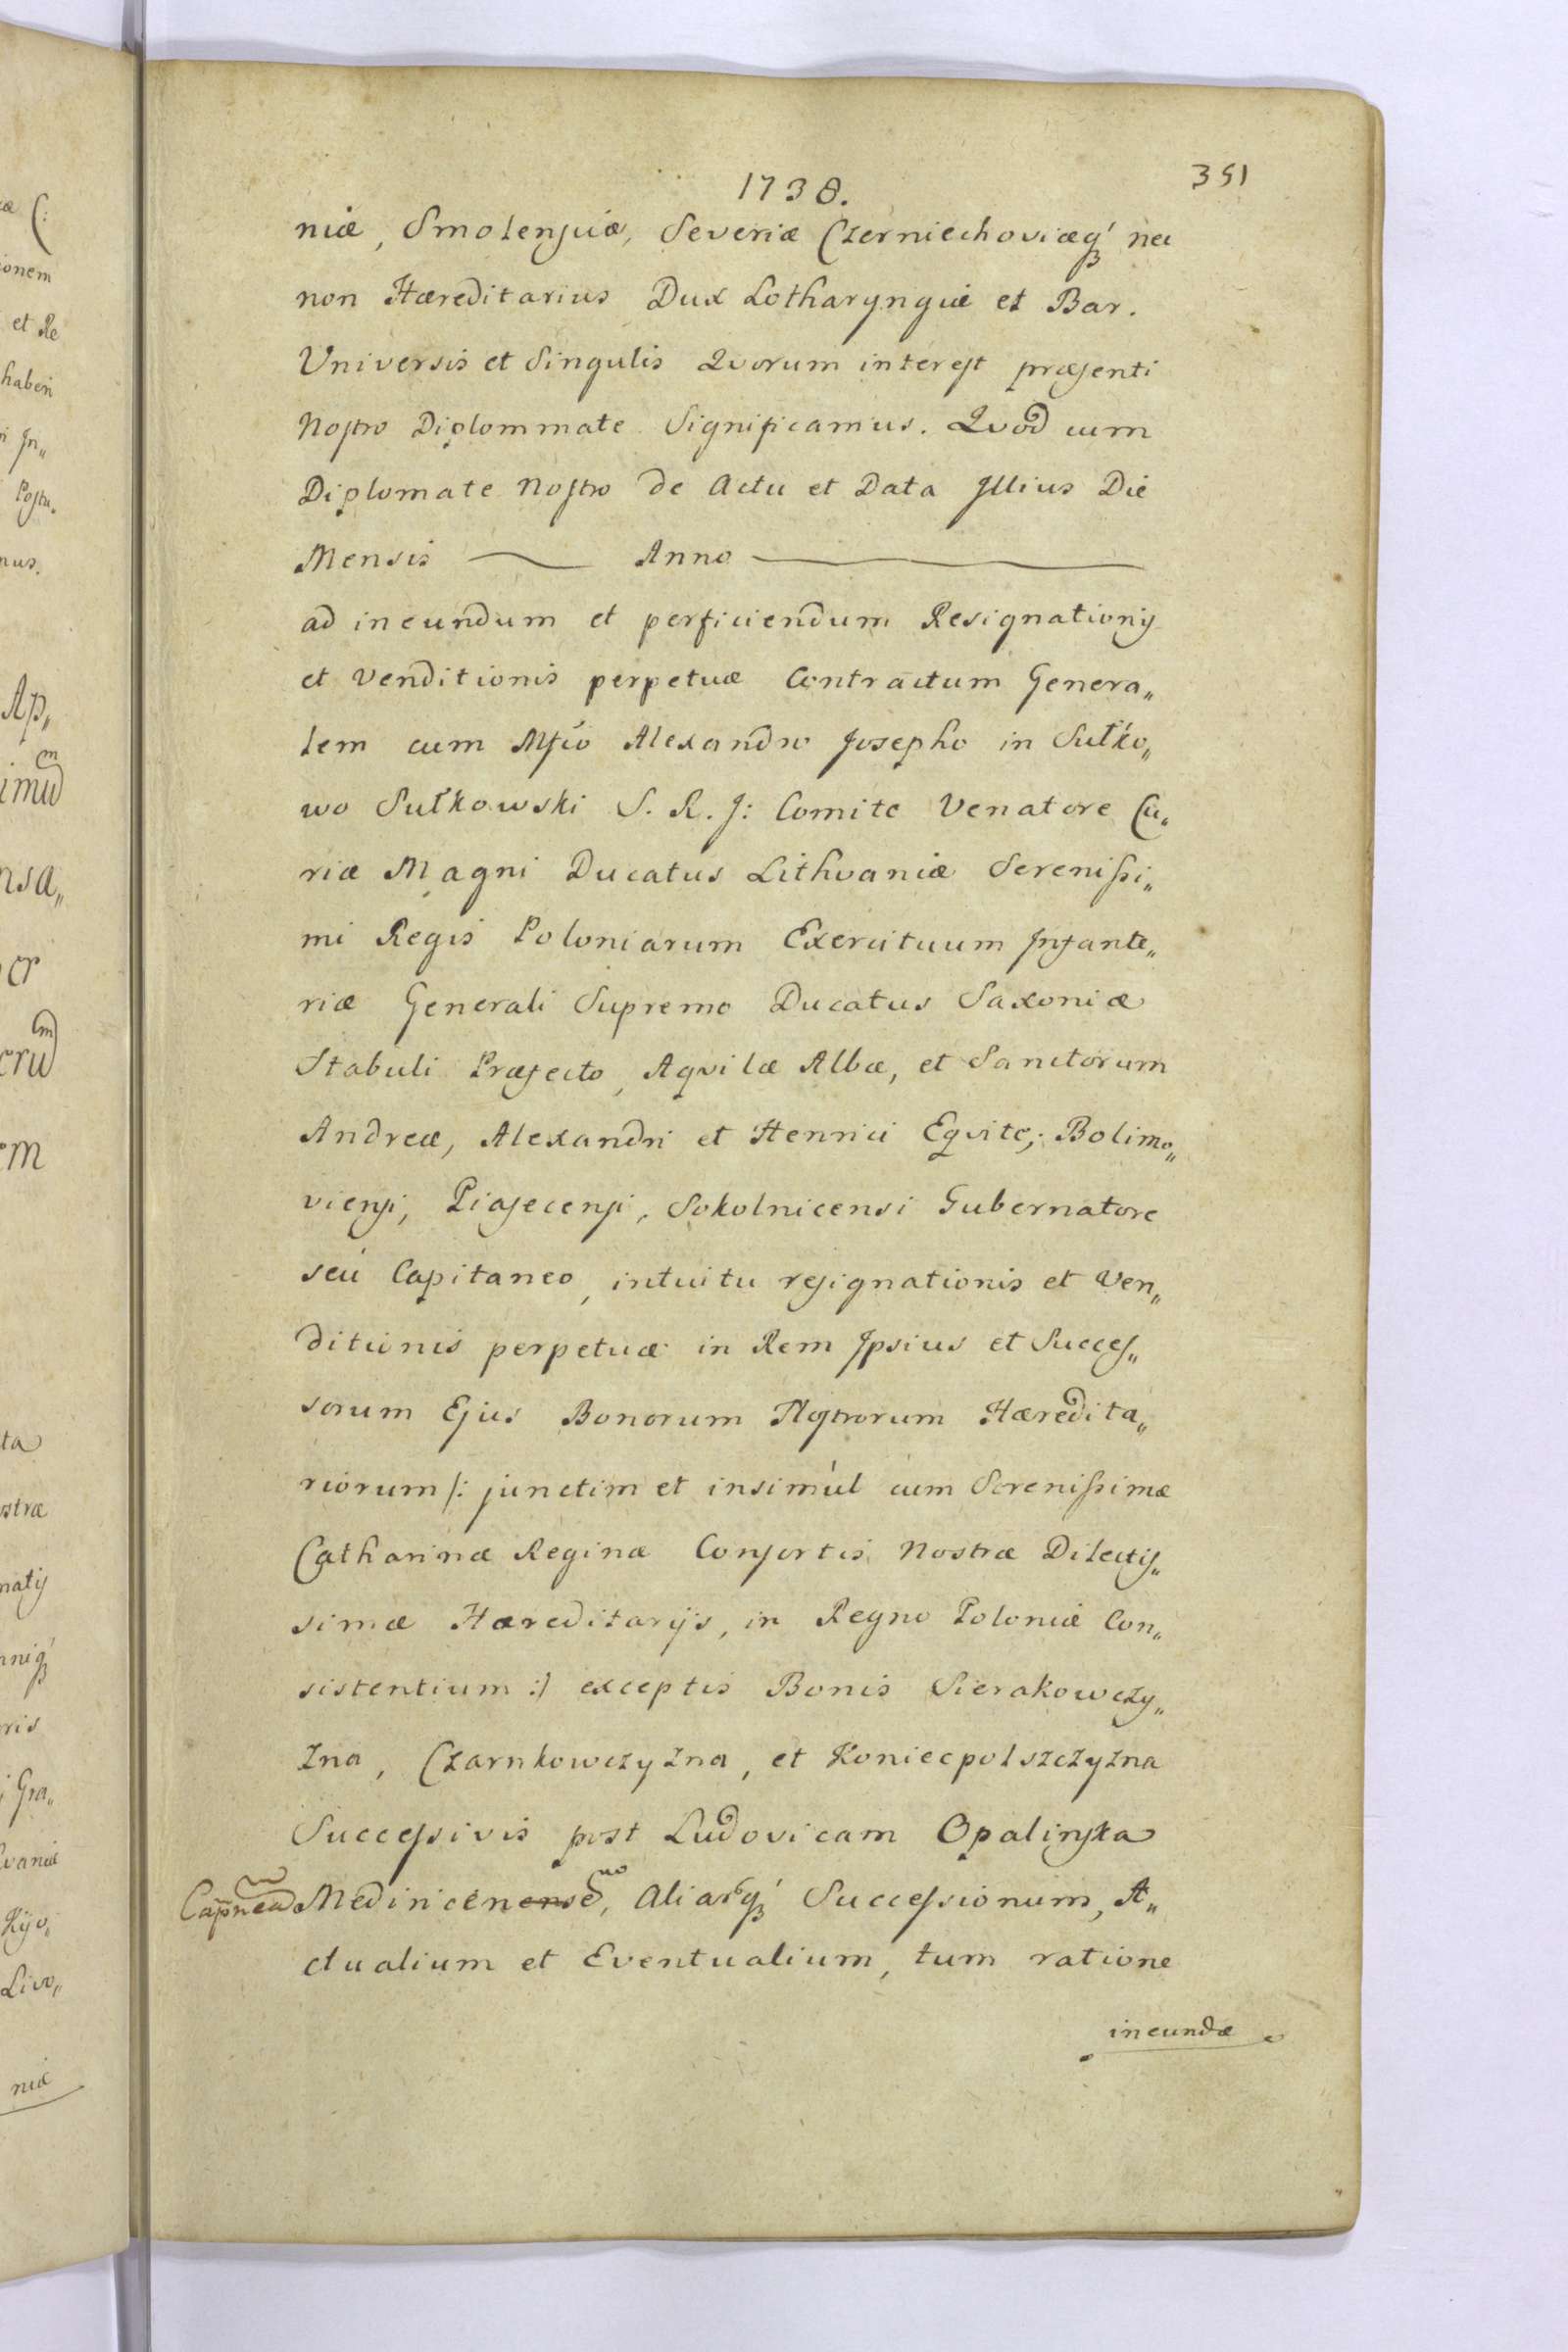 1738.
351
niæ, Smolensciæ, Severiæ Czerniechoviæq́ꝫ nec
non Hæreditarius Dux Lotharyngiæ et Bar.
Universis et Singulis Qvorum interest præsenti
Nostro Diplommate Significamus. Qvod cum
Diplomate Nostro de Actu et Data Illius Die
Mensis ——— Anno ———
ad ineundum et perficiendum Resignationis
et Venditionis perpetuæ Contractum Genera„
lem cum Mfco Alexandro Josepho in Sułko„
wo Sułkowski S. R. J: Comite Venatore Cu„
riæ Magni Ducatus Lithvaniæ Serenissi„
mi Regis Poloniarum Exercituum Infante„
riæ Generali Supremo Ducatus Saxoniæ
Stabuli Præfecto, Aqvilæ Albæ, et Sanctorum
Andreæ, Alexandri et Henrici Eqvite, Bolimo„
viensi, Piasecensi, Sokolnicensi Gubernatore
seú Capitaneo, intuitu resignationis et Ven„
ditionis perpetuæ in Rem Ipsius et Succes„
sorum Ejus Bonorum Nostrorum Hæredita„
riorum /: junctim et insimúl cum Serenissimæ
Catharinæ Reginæ Consortis Nostræ Dilectis„
simæ Hæreditarijs, in Regno Poloniæ Con„
sistentium :/ exceptis Bonis Sierakowczy„
zna, Czarnkowczyzna, et Koniecpolszczyzna
Successivis post Ludovicam Opalinska
Capnea Medinicenense no, Aliarq́ꝫ Successionum, A„
ctualium et Eventualium, tum ratione
ineundæ